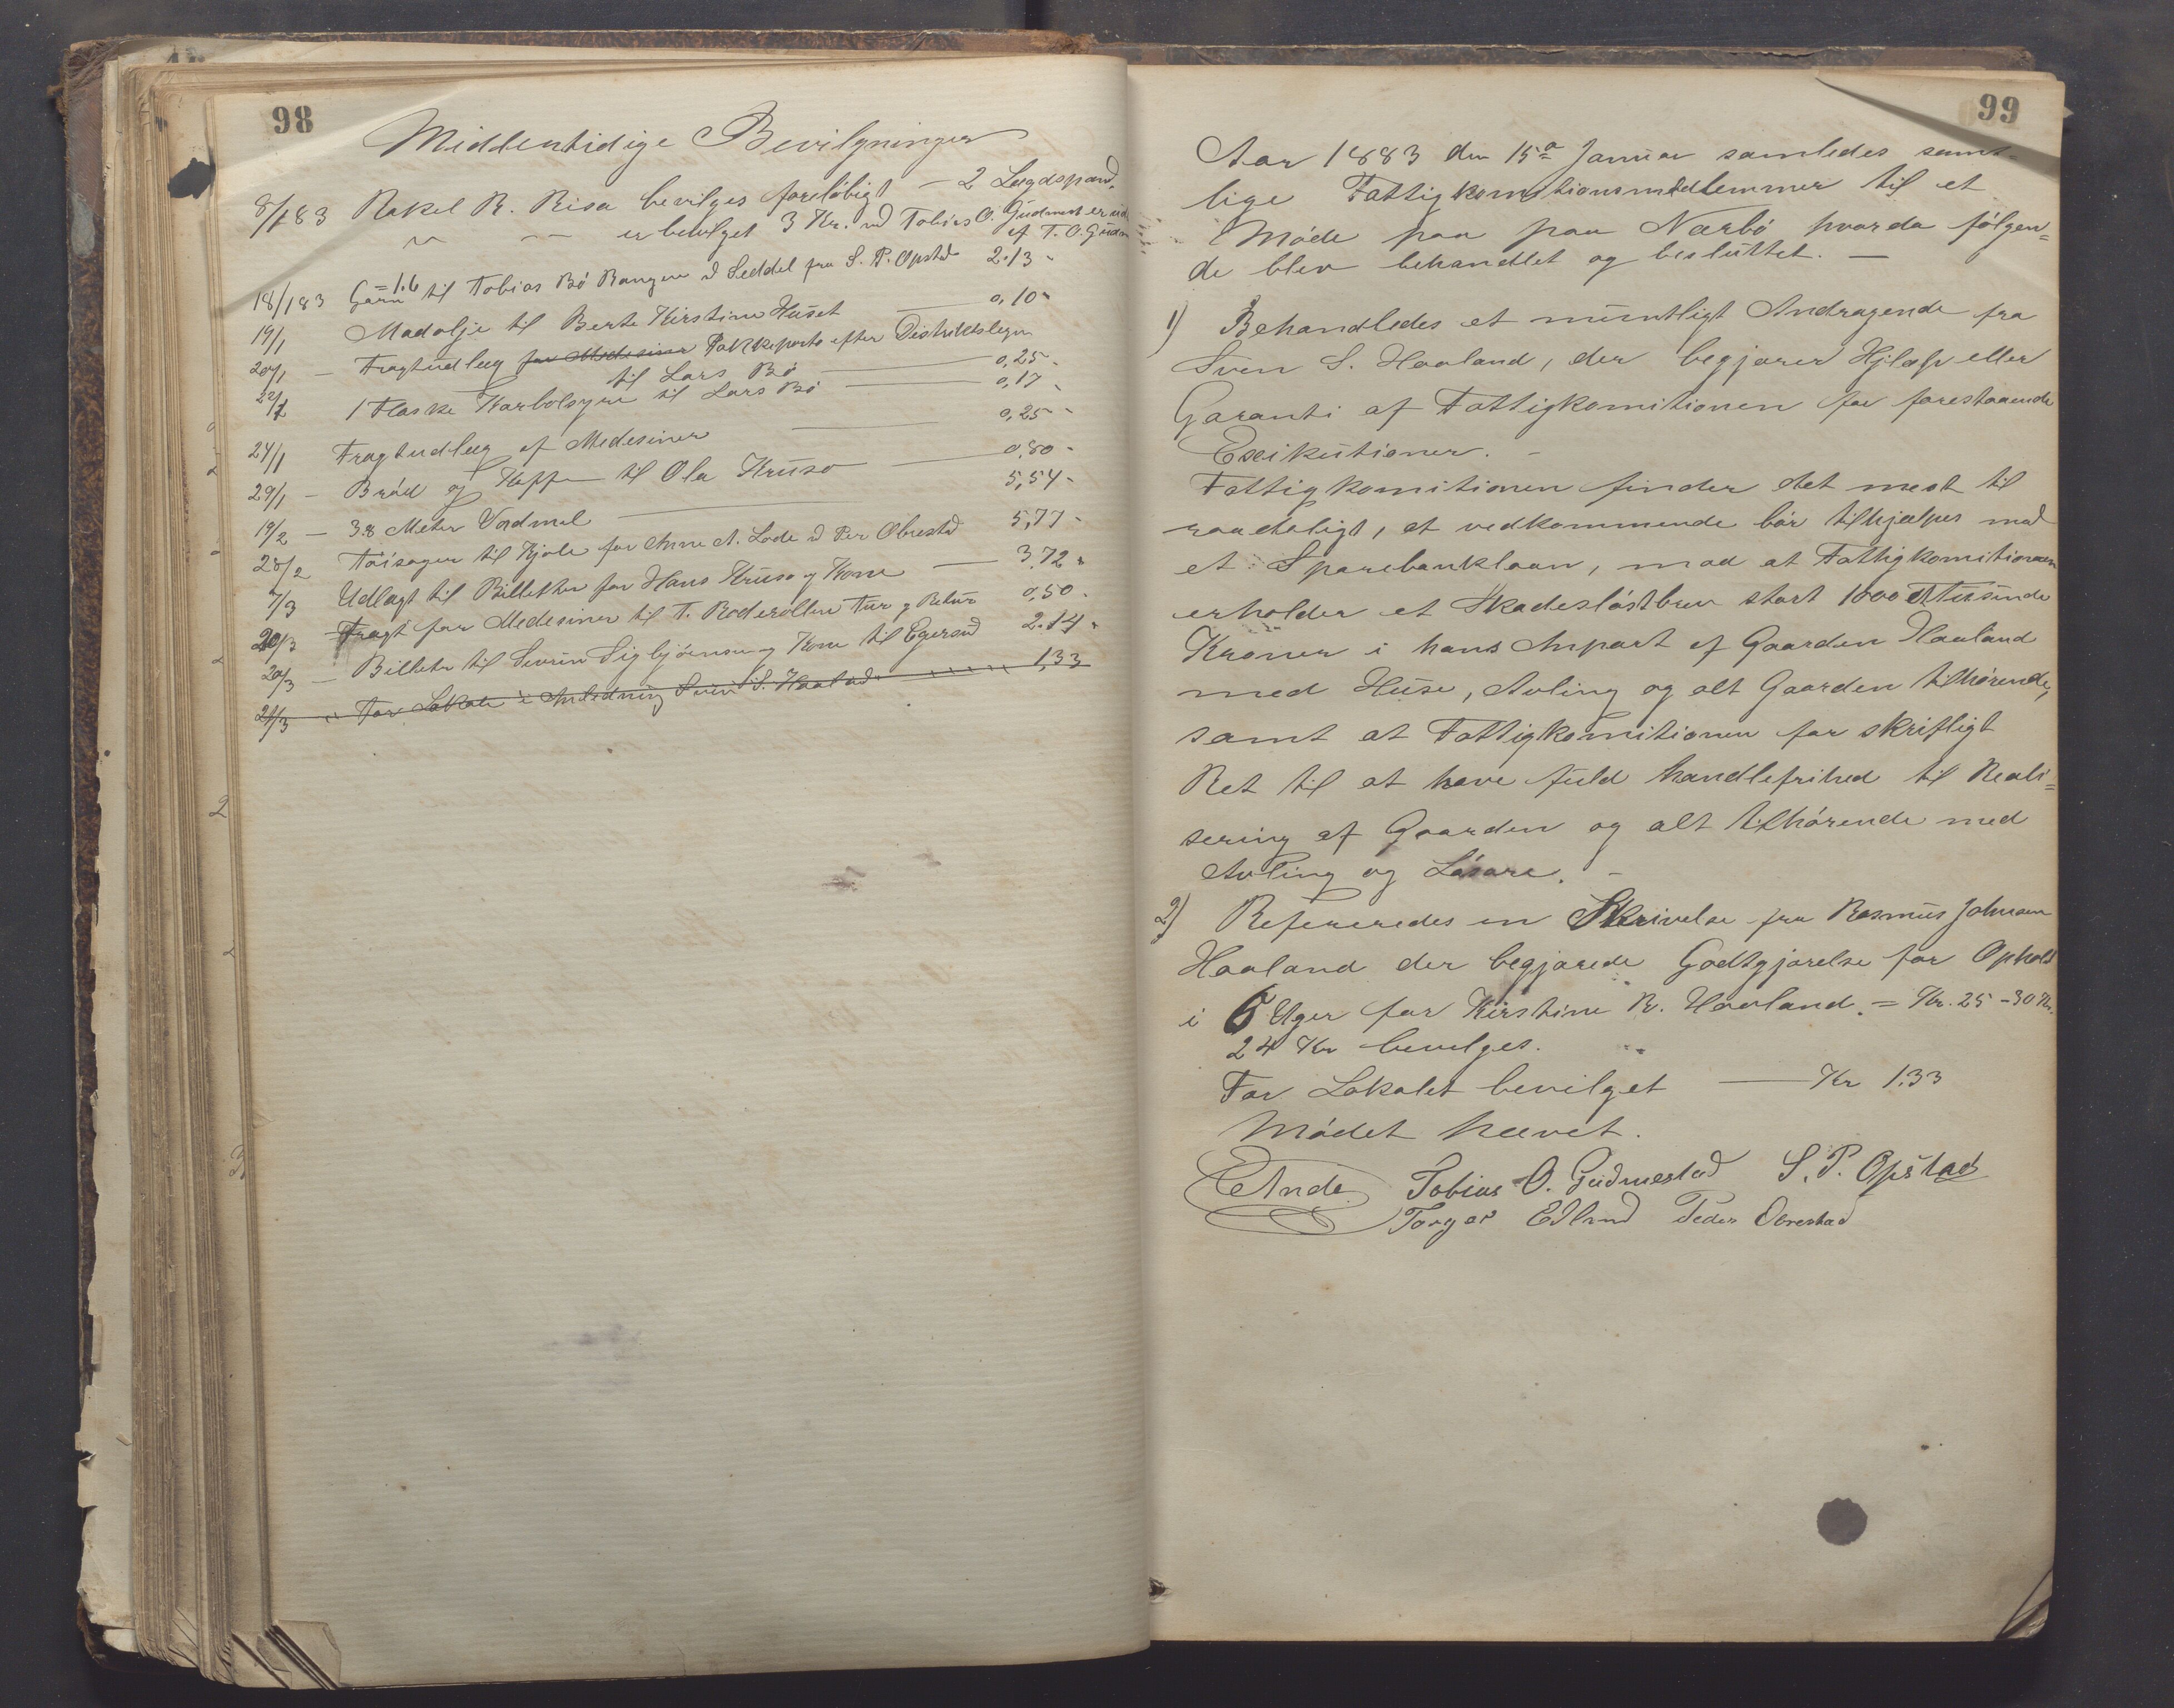 98
Midlentidige Bevilgninger
8/1 83 Rakel R. Risa bevilges foreløbigt — 2 Lægdspand.
er bevilget 3 Kr. ved Tobias O. Gudmest er ud
af T. O. Gudm
18/1 83 Garn = 1.6 til Tobias Bø Rangen d Seddel fra S. P. Opstad 2.13 -
19/1 Madolje til Berte Kirstine Huset — 0,10 -
20/1 — Fragtudlæg for Medesiner Pakkeporto efter Distriktslegen
til Lars Bø — 0,25 -
22/1 1 Flaske Karbolsyre til Lars Bø — 0,17 -
24/1 Fragtudlæg af Medesiner — 0,25 -
29/1 — Brød og Kaffe til Ola Kruse — 0,80 -
19/2 — 3.8 Meter Vadmel — 5,54 -
28/2 Tøisager til Kjole for Anne A. Lode d Per Obrestad 5,77 -
7/3 Udlagt til Billetter for Hans Kruse og Kone — 3,72 -
20/3 Fragt for Medesiner til T. Roderollen Tur og Retur 0,50 -
20/3 — Billeter til Sevrin Sigbjørnsen og Kone til Egersund 2.14 -
21/3 " For Lokale i Anledning Sven S. Haaland 1,33
99
Aar 1883 den 15de Januar samledes samt=
lige Fattigkomitionsmedlemmer til et
Møde paa paa Nærbø hvorda følgen=
de blev behandlet og besluttet. —
1) Behandledes et mundtligt Andragende fra
Sven S. Haaland, der begjærer Hjlælp eller
Garanti af Fattigkomitionen for forestaaende
Exsikutioner. -
Fattigkomitionen finder det mest til
raadeligt, at vedkommende bør tilhjælpes med
et Sparebanklaan, mod at Fattigkomitionen
erholder et Skadesløstbrev stort 1000 Et tusinde
Kroner i hans Anpart af Gaarden Haaland
med Huse, Avling og alt Gaarden tilhørende,
samt at Fattigkomitionen far skriftligt
Ret til at have fuld handlefrihed til Reali=
sering af Gaarden og alt tilhørende med
Avling og Løsøre. -
2) Refereredes en Skrivelse fra Rasmus Johnsen
Haaland der begjærede Godtgjørelse for Ophold
i 6 Uger for Kirstine R. Haaland. = Kr. 25 - 30 Kr.
24 Kr bevilges.
For Lokalet bevilget — Kr 1.33
Mødet hævet.
Ande Tobias O. Gudmestad S. P. Opstad
Torger Edland Peder Obrestad